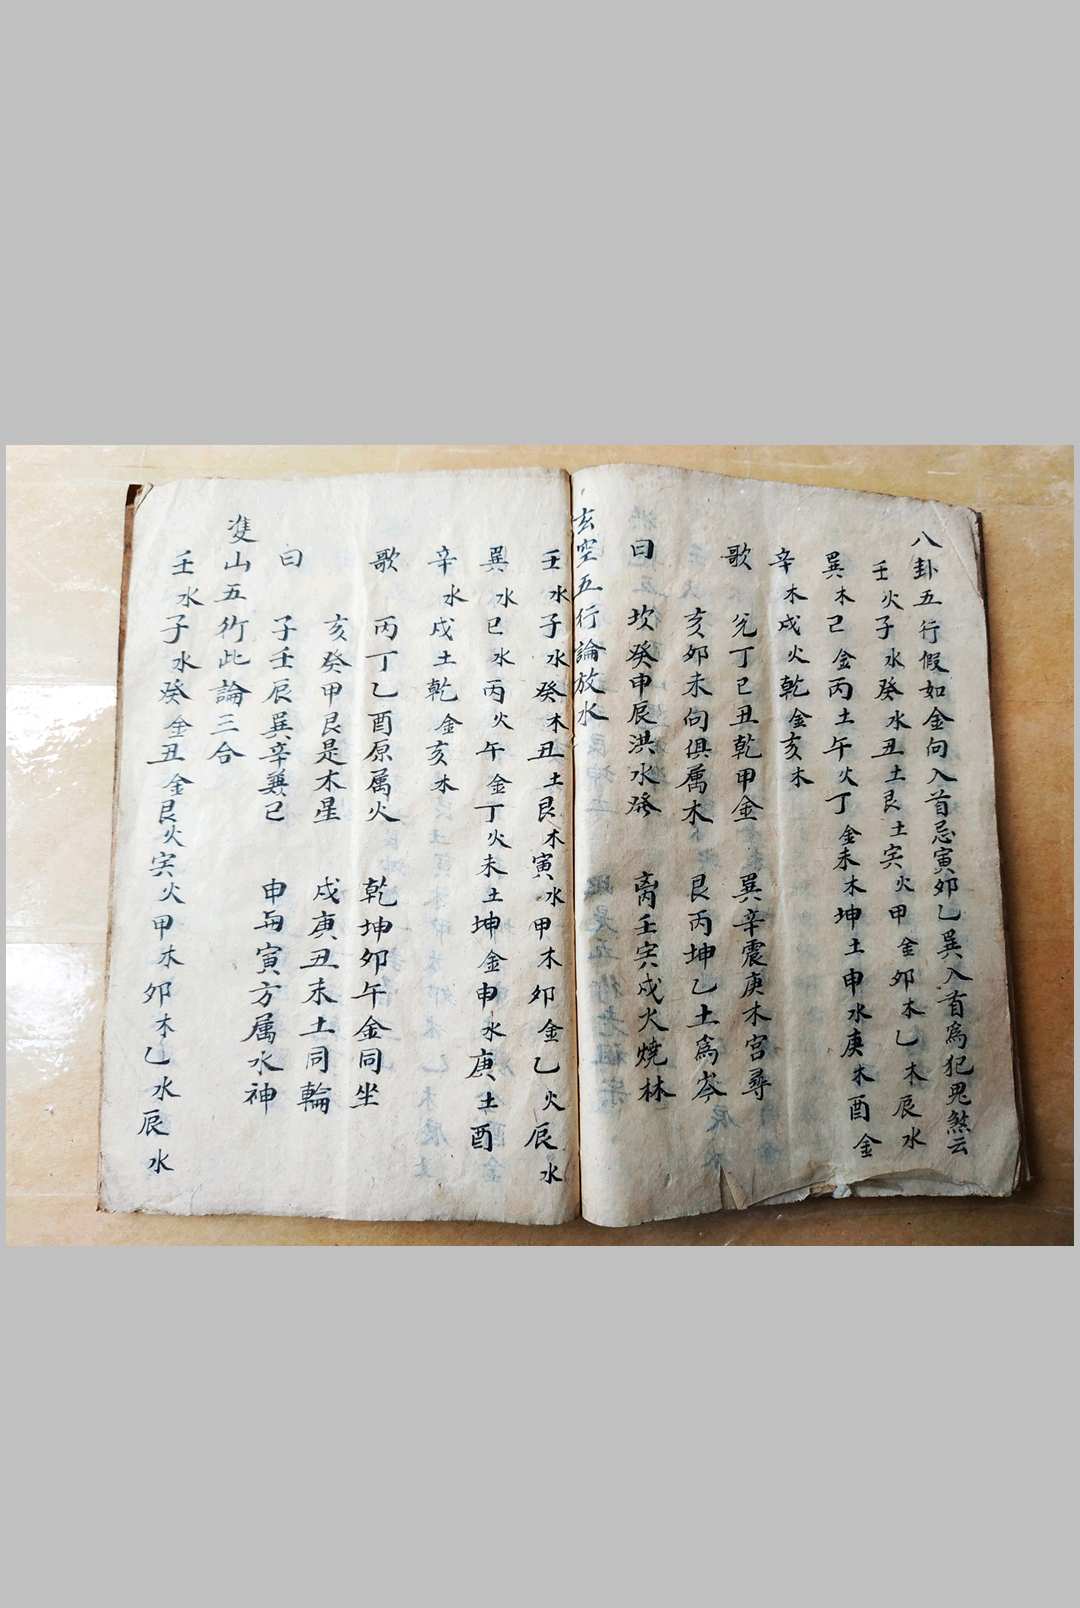 八卦五行假如金向入首忌寅卯乙巽入首為犯鬼煞云
壬火子水癸水丑土艮土寅火甲金卯木乙木辰水
巽木巳金丙土午火丁金未木坤土申水庚木酉金
辛木戌火乾金亥木
歌 兌丁巳丑乾甲金 巽辛震庚木宮尋
亥卯未向俱属木 艮丙坤乙土為岑
曰 坎癸申辰洪水發 离壬寅戌火燒林
玄空五行論放水
壬水子水癸木丑土艮木寅水甲木卯金乙火辰水
巽水巳水丙火午金丁火未土坤金申水庚土酉
辛水戌土乾金亥木
歌 丙丁乙酉原属火 乾坤卯午金同坐
亥癸甲艮是木星 戌庚丑未土同輪
曰 子壬辰巽辛兼巳 申與寅方属水神
雙山五行此論三合
壬水子水癸金丑金艮火寅火甲木卯木乙水辰水